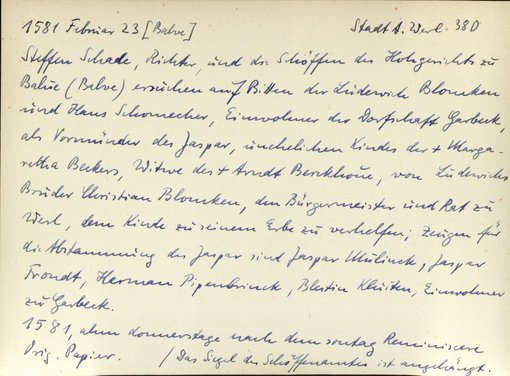 1581 Februar 23 [Balve] Stadt A. Werl. 380
Steffen Schade, Richter, und die Schöffen des Hohgerichts zu
Balue (Balve) ersuchen auf Bitten der Ludewich Blomken
und Hans Schomecher, Einwohner der Dorfschaft Garbeck,
als Vormünder des Jaspar, unehelichen Kindes der + Marga-
retha Beckers, Witwe des + Arndt Berckhoue, von Ludewichs
Bruder Christian Blomken, den Bürgermeister und Rat zu
Werl, dem Kinde zu seinem Erbe zu verhelfen; Zeugen für
die Abstammung des Jaspar sind Jaspar Mulinck, Jaspar
Frondt, Herman Pipenbrinck, Blestin Kluiten, Einwohner
zu Garbeck.
1581, ahm donnerstage nach dem sontag Reminiscere
Orig. Papier. / Das Siegel des Schöffenamtes ist angehängt.